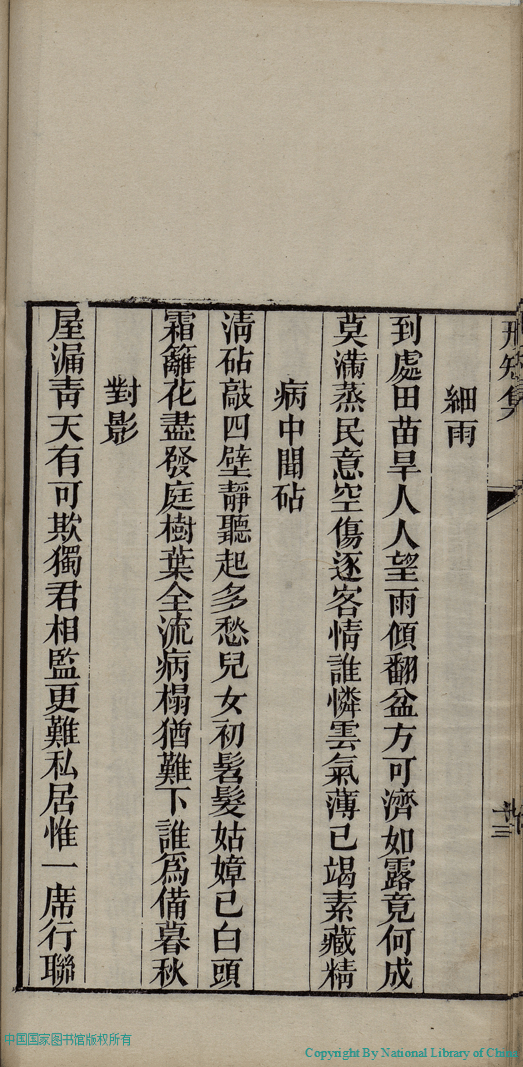 細雨
到處田苗旱人人望雨傾翻盆方可濟如露竟何成
莫滿蒸民意空傷逐客情誰憐雲氣薄已竭素藏精
病中聞砧
淸砧敲四壁靜聽起多愁兒女初髫髮姑嫜已白頭
霜籬花盡發庭樹葉全流病榻猶難下誰爲備暮秋
對影
屋漏靑天有可欺獨君相監更難私居惟一席行聯
十三
中国国家图书馆版权所有
Copyright By National Library of China